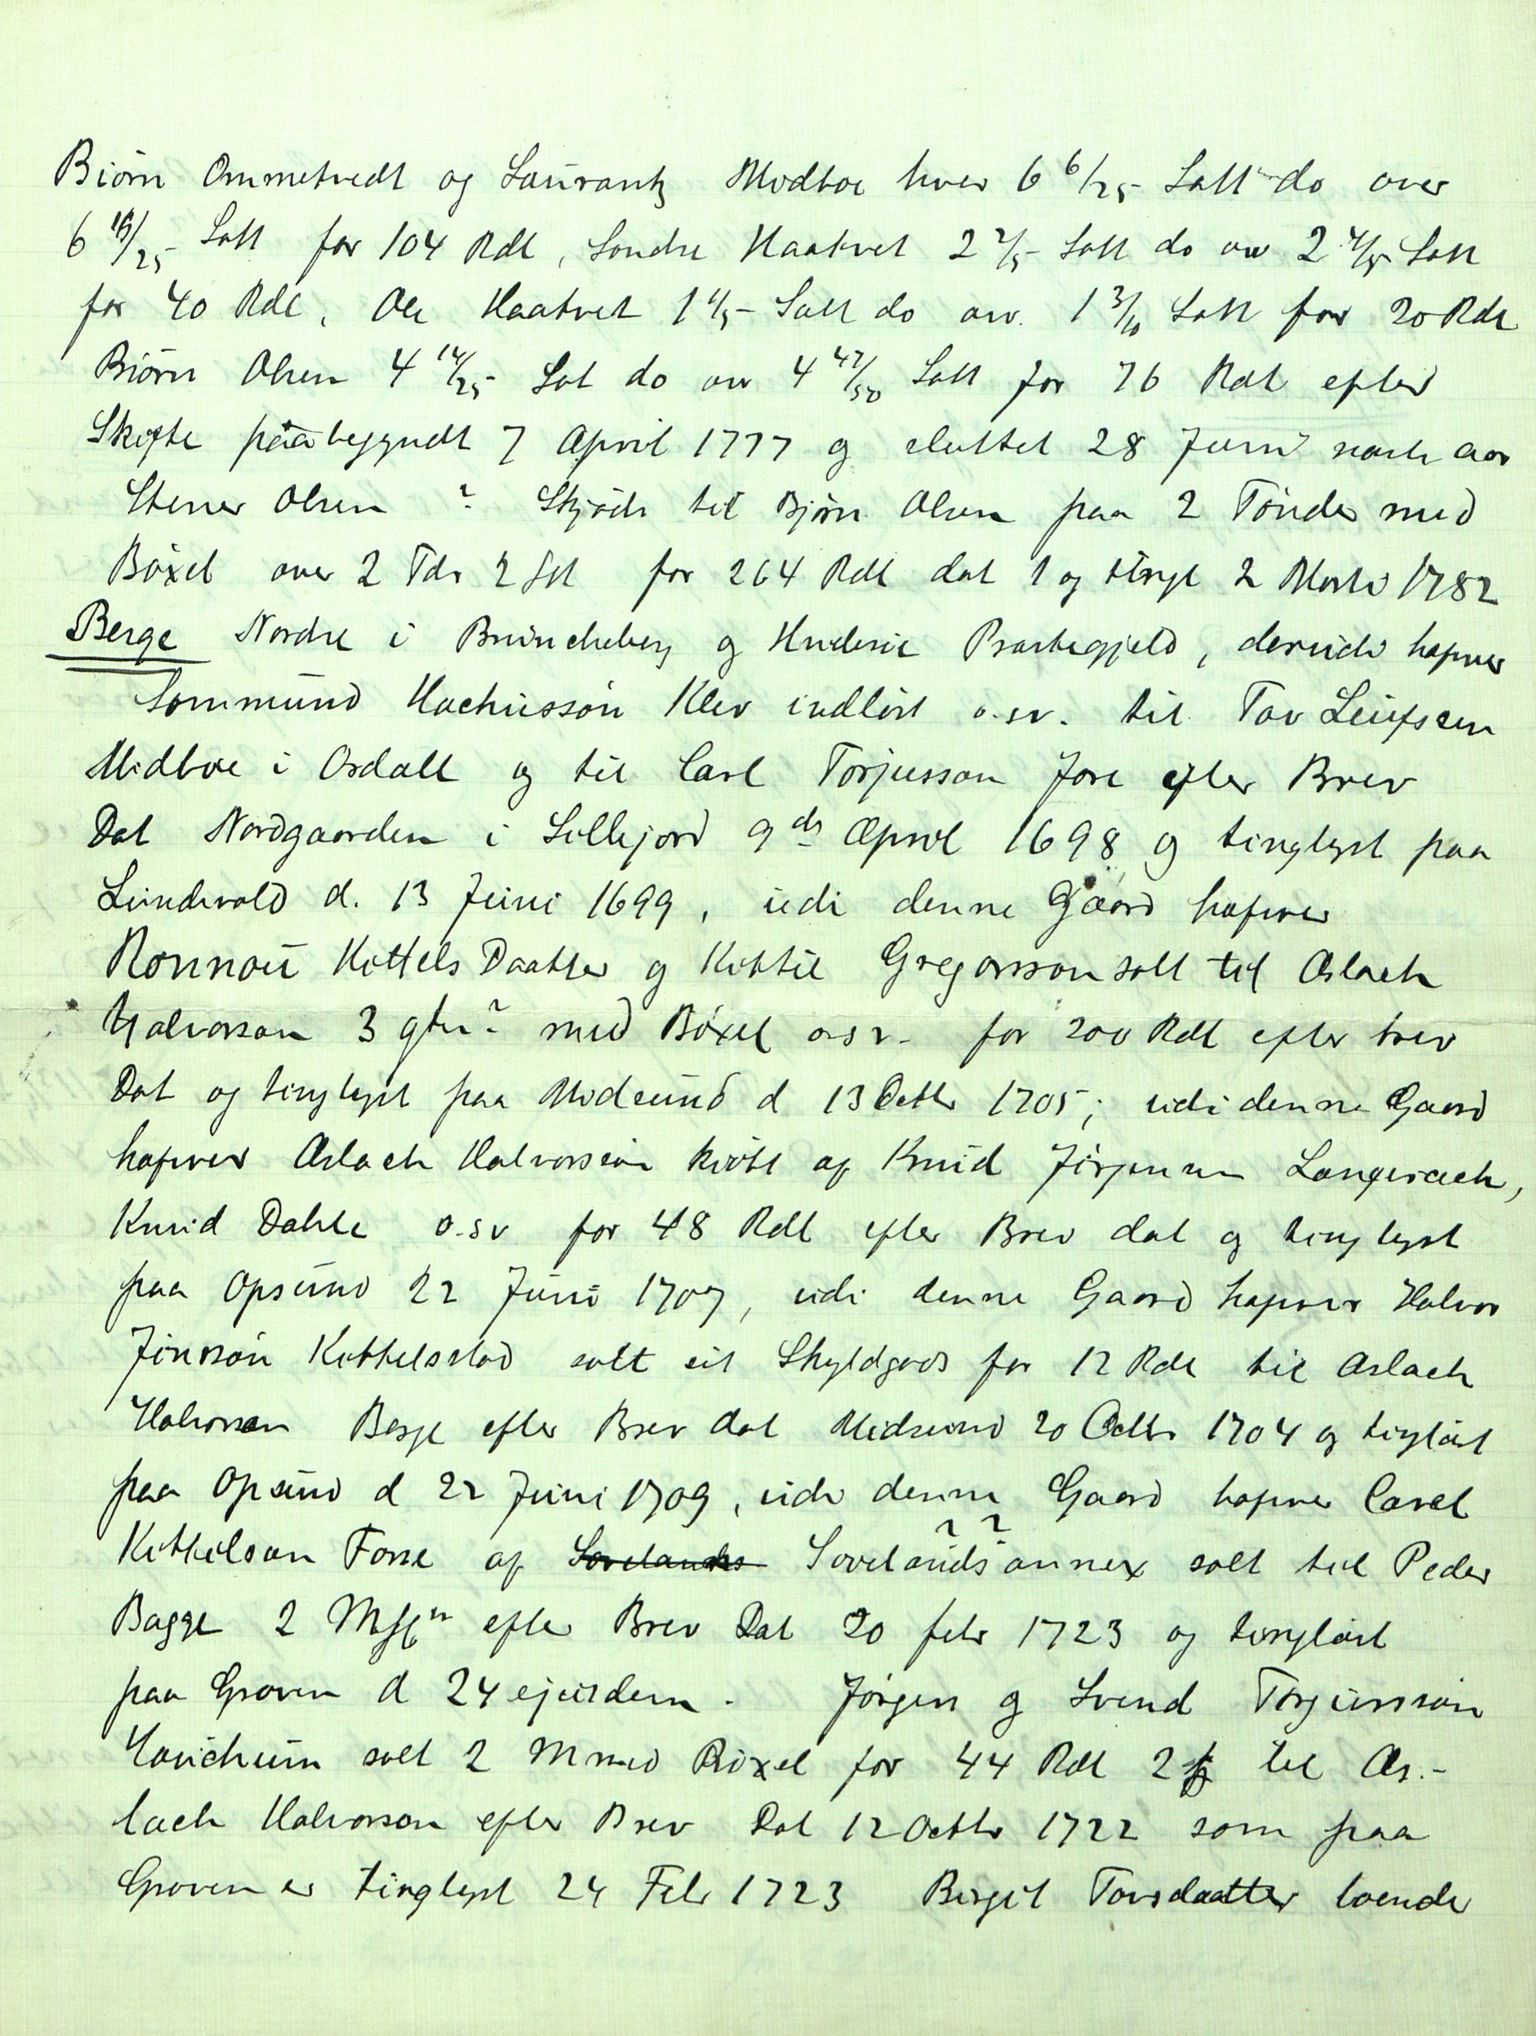 Biørn Ommetvedt og Laurantz Midboe hver 6 6/25 Sætt do over
6 19/25 Sætt for 104 Rdl, Sondre Haatvet 2 2/5 Sætt do ov 2 4/5 Sætt
for 40 Rdl, Ole Haatvet 1 1/5 Sætt do ov. 1 3/10 Sætt for 20 Rdl
Biørn Olsen 4 14/25 Sæt do ov 4 47/50 Sætt for 76 Rdl efter
Skifte paabegyndt 7 April 1777 og sluttet 28 Juni næste aar
Stener Olsen ? Skjøde til Bjørn Olsen paa 2 Tønder med
Bøxel over 2 Tdr 2 Sæt for 264 Rdl dat 1 og tingl 2 Marts 1782
Berge Nordre i Bruncheberg og Huderie Præstegjeld, derudi hafver
Sommund Hachusson Klev indløst o.sv. til Tov Leufsen
Midboe i Ordall og til Carl Torjusson Fore efter Brev
Dat Nordgaarden i Sillejord 9de April 1698 og tinglyst paa
Lundevald d. 13 Juni 1699, udi denne Gaard hafver
Ronnou Kittels Daatter og Kittil Gregorsson solt til Aslach
Halvorson 3 gtn? med Bøxel osv. for 200 Rdl efter brev
Dat og tinglyst paa Midsund d 13 Octbr 1705; udi denne Gaard
hafver Aslach Halvorsson kiøbt af Knud Jørgensen Langerach,
Knud Dahle o.sv for 48 Rdl efter Brev dat og tinglyst
paa Opsund 22 Juni 1707, udi denne Gaard hafver Halvor
Jonsson Kittelsstad solt sit Skyldgods for 12 Rdl til Aslach
Halvorsen Berge efter Brev dat Midsund 20 Octbr 1704 og tinglæst
paa Opsund d 22 Juni 1709, udi denne Gaard hafver Carel
Kittelson Forse af Sovelands Sovelands?? annex solt til Peder
Bagge 2 Mk efter Brev Dat 20 febr 1723 og tinglæst
paa Groven d 24 ejusdem. Jørgen og Svend Torjusson
Havichum solt 2 M med Bøxel for 44 Rdl 2 til As-
lach Halvorson efter Brev Dat 12 Octbr 1722 som paa
Groven er tinglyst 24 Febr 1723 Birgit Tovsdaatter boende